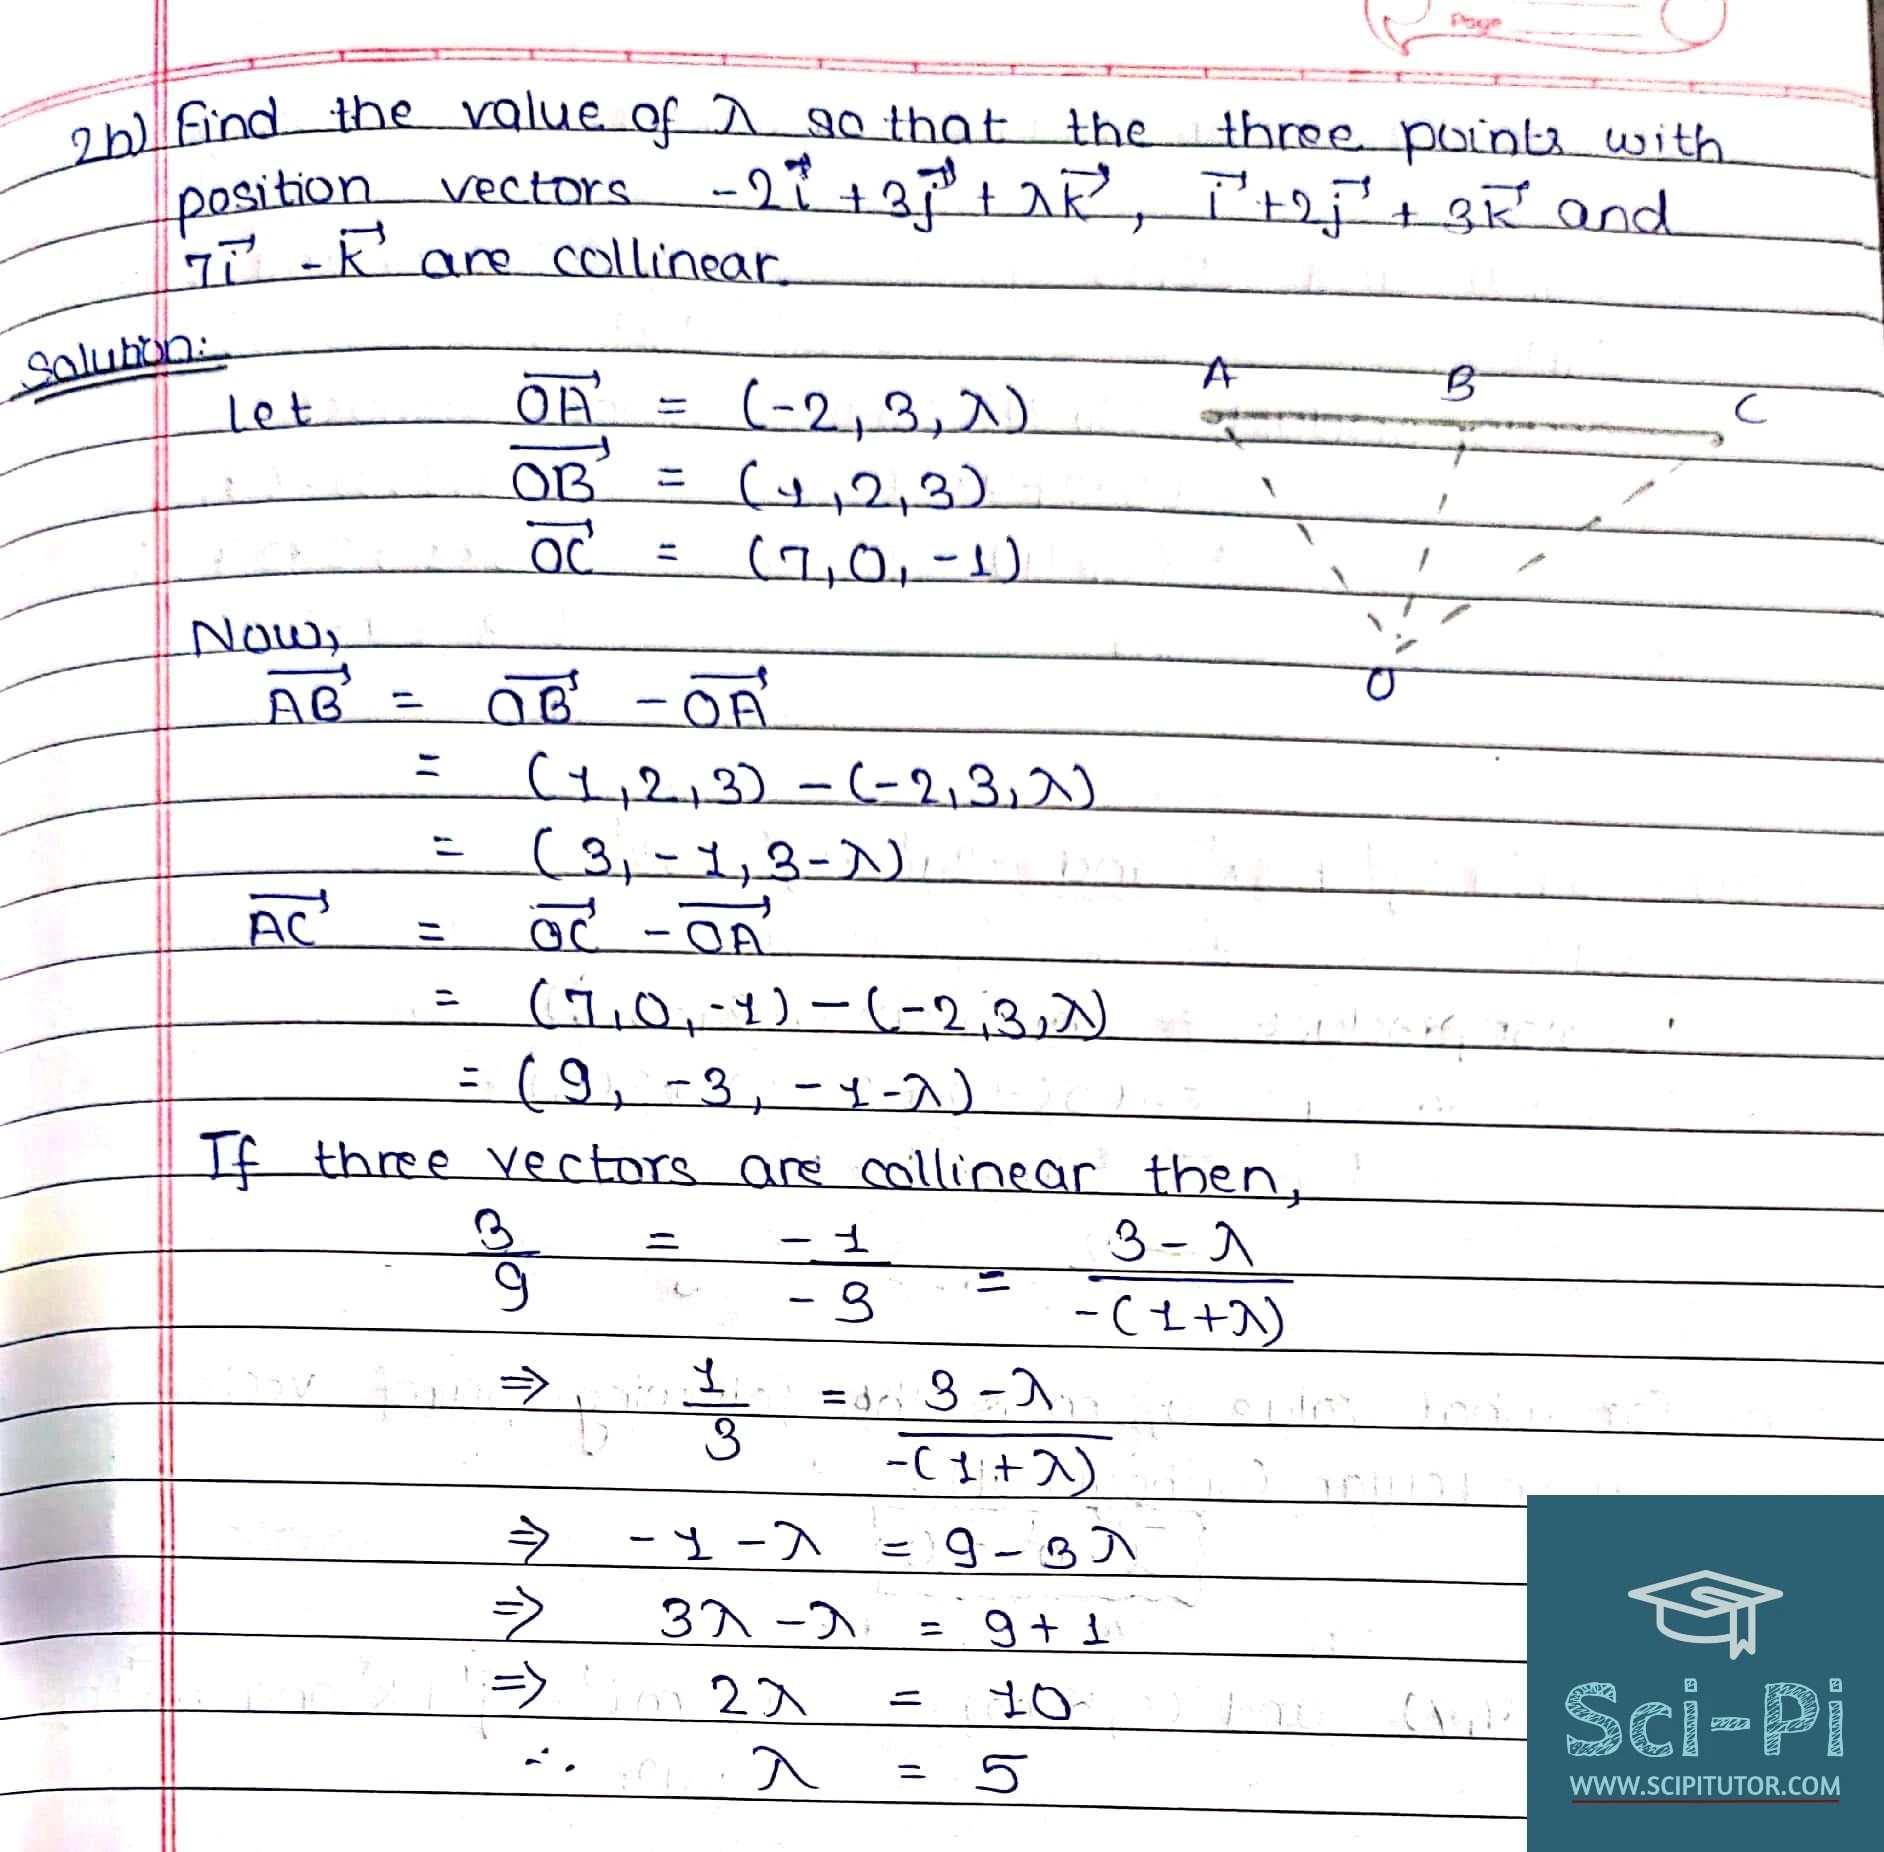 Page
2b) Find the value of λ so that the three points with
position vectors -2i⃗ + 3j⃗ + λk⃗, i⃗ + 2j⃗ + 3k⃗ and
7i⃗ - k⃗ are collinear.
Solution:
Let OA⃗ = (-2, 3, λ)
OB⃗ = (1, 2, 3)
OC⃗ = (7, 0, -1)
A B C
O
Now,
AB⃗ = OB⃗ - OA⃗
= (1, 2, 3) - (-2, 3, λ)
= (3, -1, 3-λ)
AC⃗ = OC⃗ - OA⃗
= (7, 0, -1) - (-2, 3, λ)
= (9, -3, -1-λ)
If three vectors are collinear then,
3/9 = -1/-3 = 3-λ/-(1+λ)
⇒ 1/3 = 3-λ/-(1+λ)
⇒ -1-λ = 9-3λ
⇒ 3λ-λ = 9+1
⇒ 2λ = 10
∴ λ = 5
Sci-Pi
WWW.SCIPITUTOR.COM